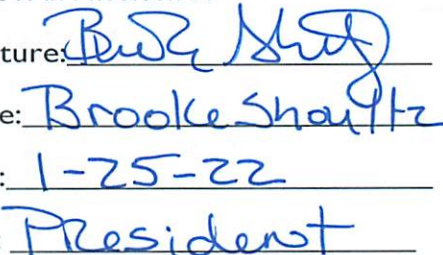 ture:
e: Brooke Shoultz
: 1-25-22
: President